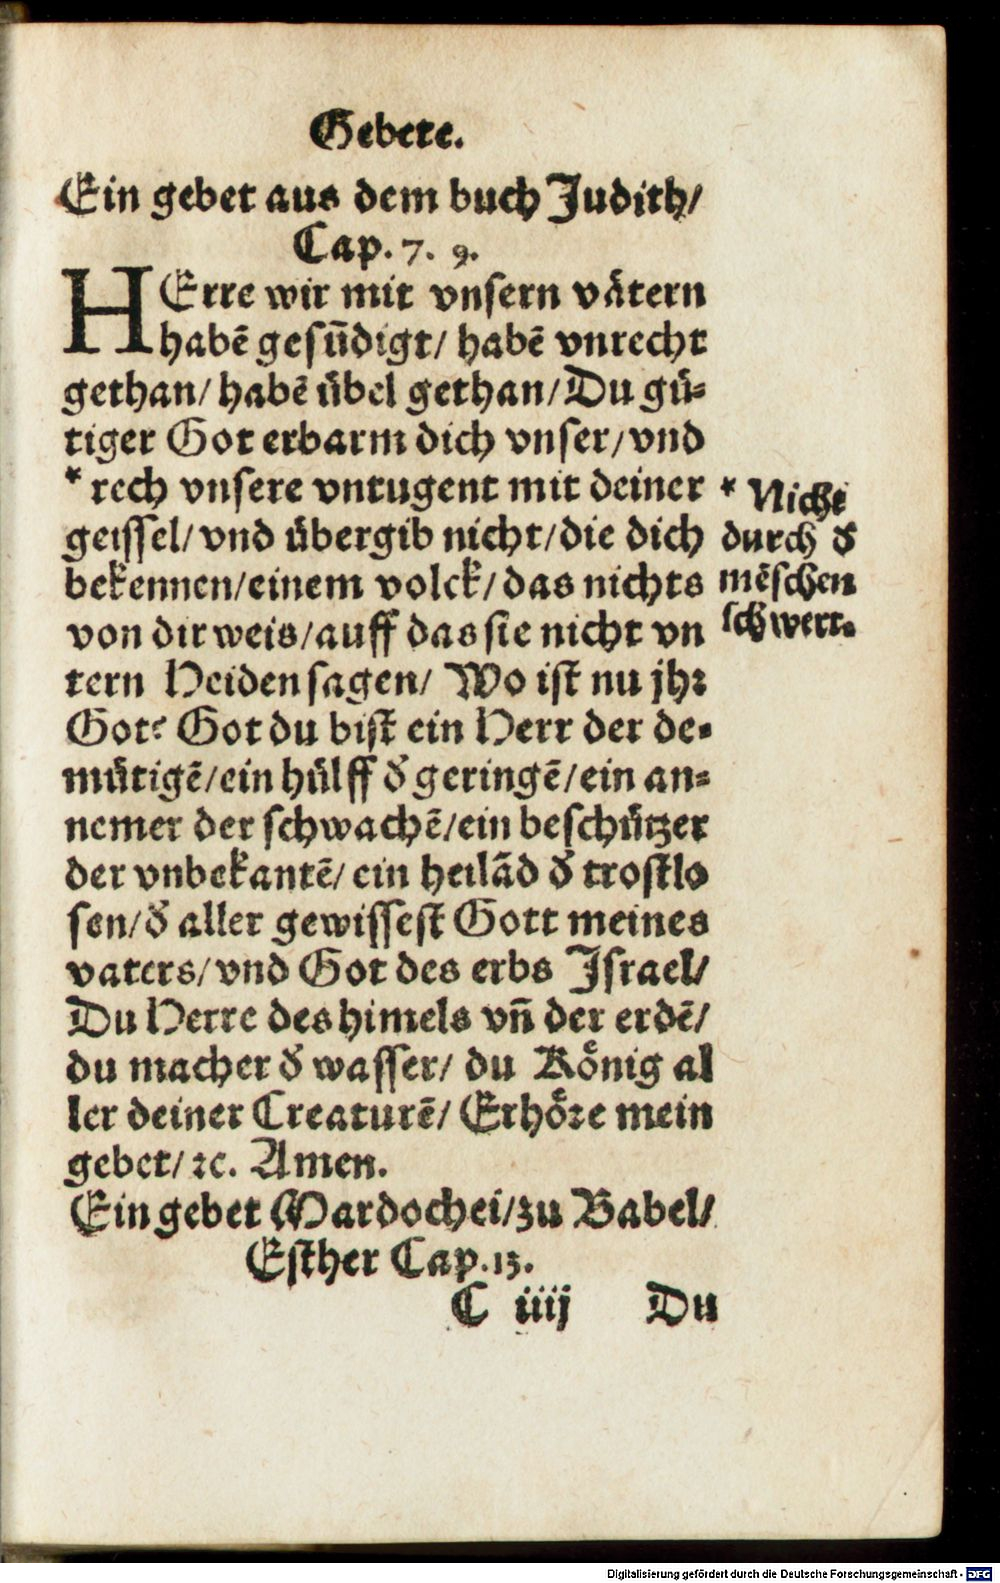 Gebete.
Ein gebet aus dem buch Judith/
Cap. 7. 9.
HErre wir mit vnsern vätern
habē gesūdigt/ habē vnrecht
gethan/ habē übel gethan/ Du gü-
tiger Got erbarm dich vnser/ vnd
* rech vnsere vntugent mit deiner
geissel/ vnd übergib nicht/ die dich
bekennen/ einem volck/ das nichts
von dir weis/ auff das sie nicht vn
tern Heiden sagen/ Wo ist nu jhr
Got? Got du bist ein Herr der de-
mütigē/ ein hülff d̕ geringē/ ein an-
nemer der schwachē/ ein beschützer
der vnbekantē/ ein heilād d̕ trostlo
sen/ d̕ aller gewissest Gott meines
vaters/ vnd Got des erbs Israel/
Du Herre des himels vn̄ der erdē/
du macher d̕ wasser/ du König al
ler deiner Creaturē/ Erhöre mein
gebet/ ꝛc. Amen.
Ein gebet Mardochei/ zu Babel/
Esther Cap. 13.
C iiij Du
* Nicht
durch d̕
mēschen
schwert.
Digitalisierung gefördert durch die Deutsche Forschungsgemeinschaft - DFG